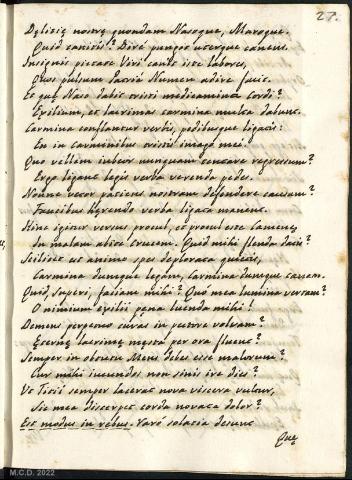 27.
Delitię nostrę quondam Naso­que, Maroque.
Quid canitis? Dirè pungor uterque canens.
Insignis pietate Viri canit iste labores,
Quos pulsum Patriâ Numen adire facit.
Et quę Naso dabit tristi medicamina Cordi?
Exilium, et lacrimas carmina multa dabunt.
Carmina conflantur verbis, pedibusque ligatis:
En in Carminibus tristis imago mei.
Quo vellem iubeor nunquam tentare regressum?
Ergo ligant legis verba verenda pedes.
Nonne vetor patiens nostram defendere causam?
Faucibus hęrendo verba ligata manent.
Hinc igitur versus procul, et procul este Camenę
In malam abite Crucem. Quid mihi flenda datis?
Scilicet ut animo spes deplorata quietis,
Carmina dumque legam, carmina dumque canam.
Quid, Superi, faciam mihi? Quò mea lumina vertam?
O nimium exilii pęna luenda mihi!
Demens perpetuò curas in pectore volvam?
Ęternę lacrimę męsta per ora fluent?
Semper in obtutu Mens debes esse malorum?
Cur mihi iucundos non sinis ire dies?
Ut Titii semper lacerat nova viscera vultur,
Sic mea discerpet corda novata dolor?
Est modus in rebus. Rarò solatia desunt
Quę
M.C.D. 2022